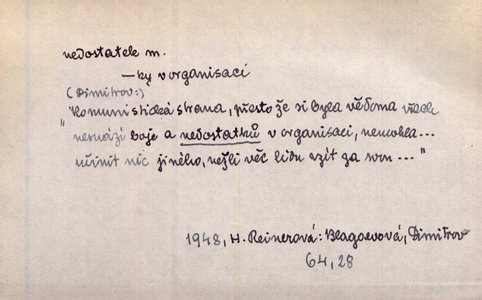 nedostatek m.
—ky v organisací
(Dimitrov:)
"Komunistická strana, přesto že si byla vědoma všech
nesnází boje a nedostatků v organisaci, nemohla...
učinit nic jiného, nežli věc lidu vzít za svou ..."
1948, H. Reinerová: Blagoevová, Dimitrov
64, 28